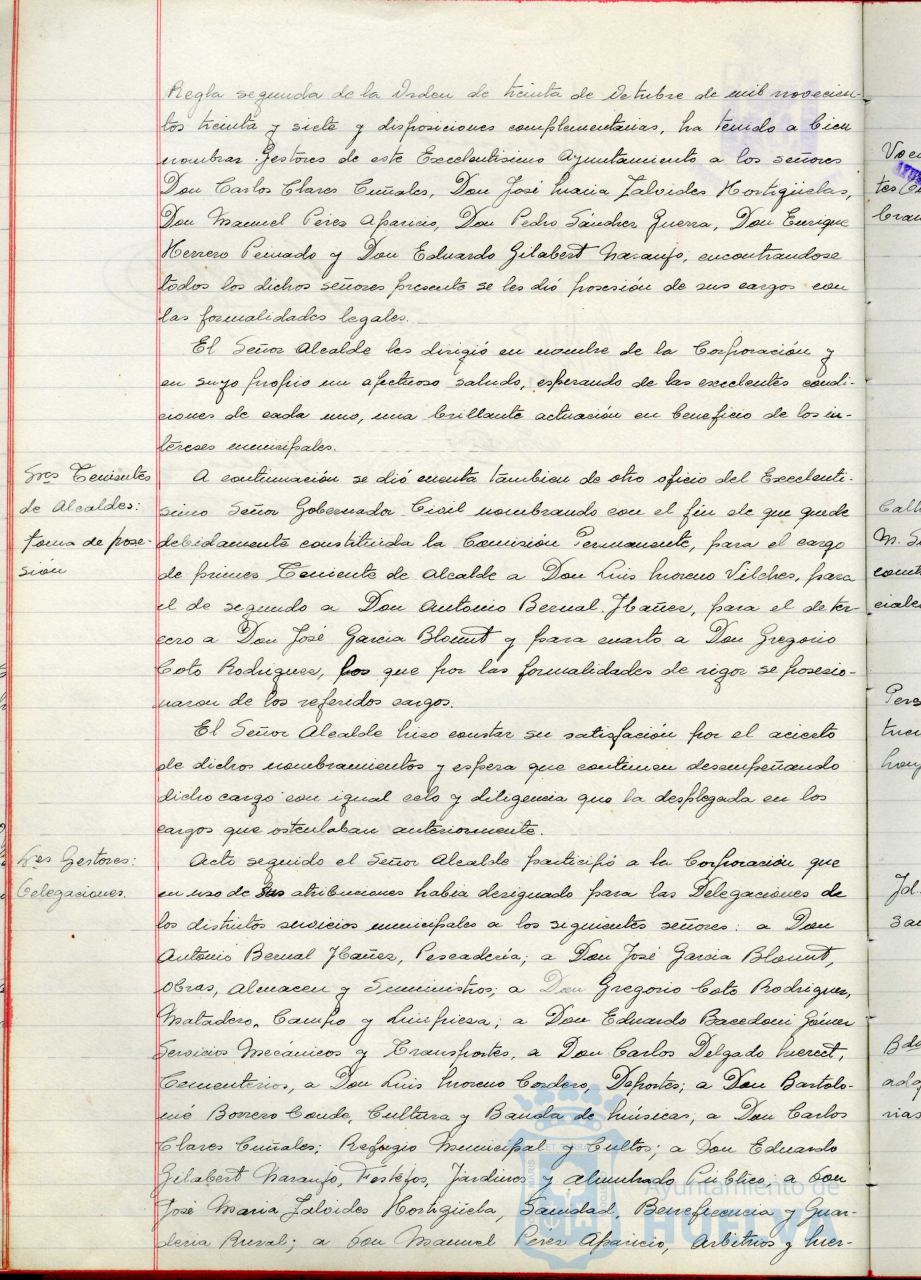 Regla segunda de la Orden de treinta de Octubre de mil novecien-
tos treinta y siete y disposiciones complementarias, ha tenido a bien
nombrar Gestores de este Excelentisimo Ayuntamiento a los señores
Don Carlos Clares Cuñales, Don José Maria Zalvides Hortigüelas,
Don Manuel Peres Aparicio, Don Pedro Sánches Guerra, Don Enrique
Herrero Peinado y Don Eduardo Gilabert Naranjo, encontrandose
todos los dichos señores presente se les dió posesión de sus cargos con
las formalidades legales.
El Señor Alcalde les dirigió en nombre de la Corporación y
en suyo propio un afectuoso saludo, esperando de las excelentes condi-
ciones de cada uno, una brillante actuación en beneficio de los in-
tereses municipales.
Sres Tenientes
de Alcaldes:
toma de pose-
sion
A continuación se dió cuenta tambien de otro oficio del Excelenti-
simo Señor Gobernador Civil nombrando con el fin de que quede
debidamente constituida la Comisión Permanente, para el cargo
de primer Teniente de Alcalde a Don Luis Moreno Vilches, para
el de segundo a Don Antonio Bernal Ibañes, para el de ter-
cero a Don José Garcia Blount y para cuarto a Don Gregorio
Coto Rodrigues, los que por las formalidades de rigor se posesio-
naron de los referidos cargos.
El Señor Alcalde hiso constar su satisfacción por el acierto
de dichos nombramientos y espera que continuen desempeñando
dicho cargo con igual celo y diligencia que la desplegada en los
cargos que ostentaban anteriormente.
Sres Gestores:
Delegaciones.
Acto seguido el Señor Alcalde participó a la Corporación que
en uso de sus atribuciones habia designado para las Delegaciones de
los distintos servicios municipales a los siguientes señores: a Don
Antonio Bernal Ibañes, Pescadería; a Don José Garcia Blount,
Obras, Almacen y Suministros; a Don Gregorio Coto Rodrigues,
Matadero, Campo y Limpiesa; a Don Eduardo Bacedoni Gómes
Servicios Mecánicos y Transportes, a Don Carlos Delgado
Cementerios, a Don Luis Moreno Cordero, Deportes; a Don Bartolo-
mé Borrero Conde, Cultura y Banda de músicas, a Don Carlos
Clares Cuñales; Refugio Municipal y Cultos; a Don Eduardo
Gilabert Naranjo, Festejos, Jardines y alumbrado Publico, a don
José Maria Zalvides Hortigüela, Sanidad, Beneficencia y Guar-
deria Rural; a don Manuel Péres Aparicio, Arbitrios y
Ayuntamiento de
HUELVA